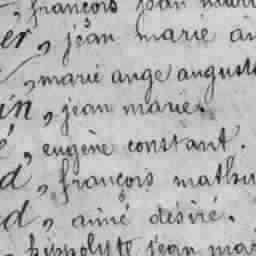 , françois jean mari
er, jean marie an
, marie ange augusto
in, jean marie.
é, eugène constant.
d, françois mathu
d, aimé désiré.
, hippolyte jean mar